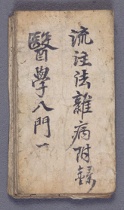 流注法雜病附錄
醫學八門一